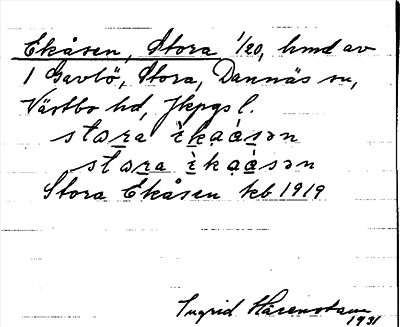 Ekåsen, Stora 1/20, hmd av
1 Gavlö, Stora, Dannäs sn,
Västbo hd, Jkpgs l.
stara ìkạásən
stara ìkạásən
Stora Ekåsen kb 1919
Ingrid Härenstam
1931